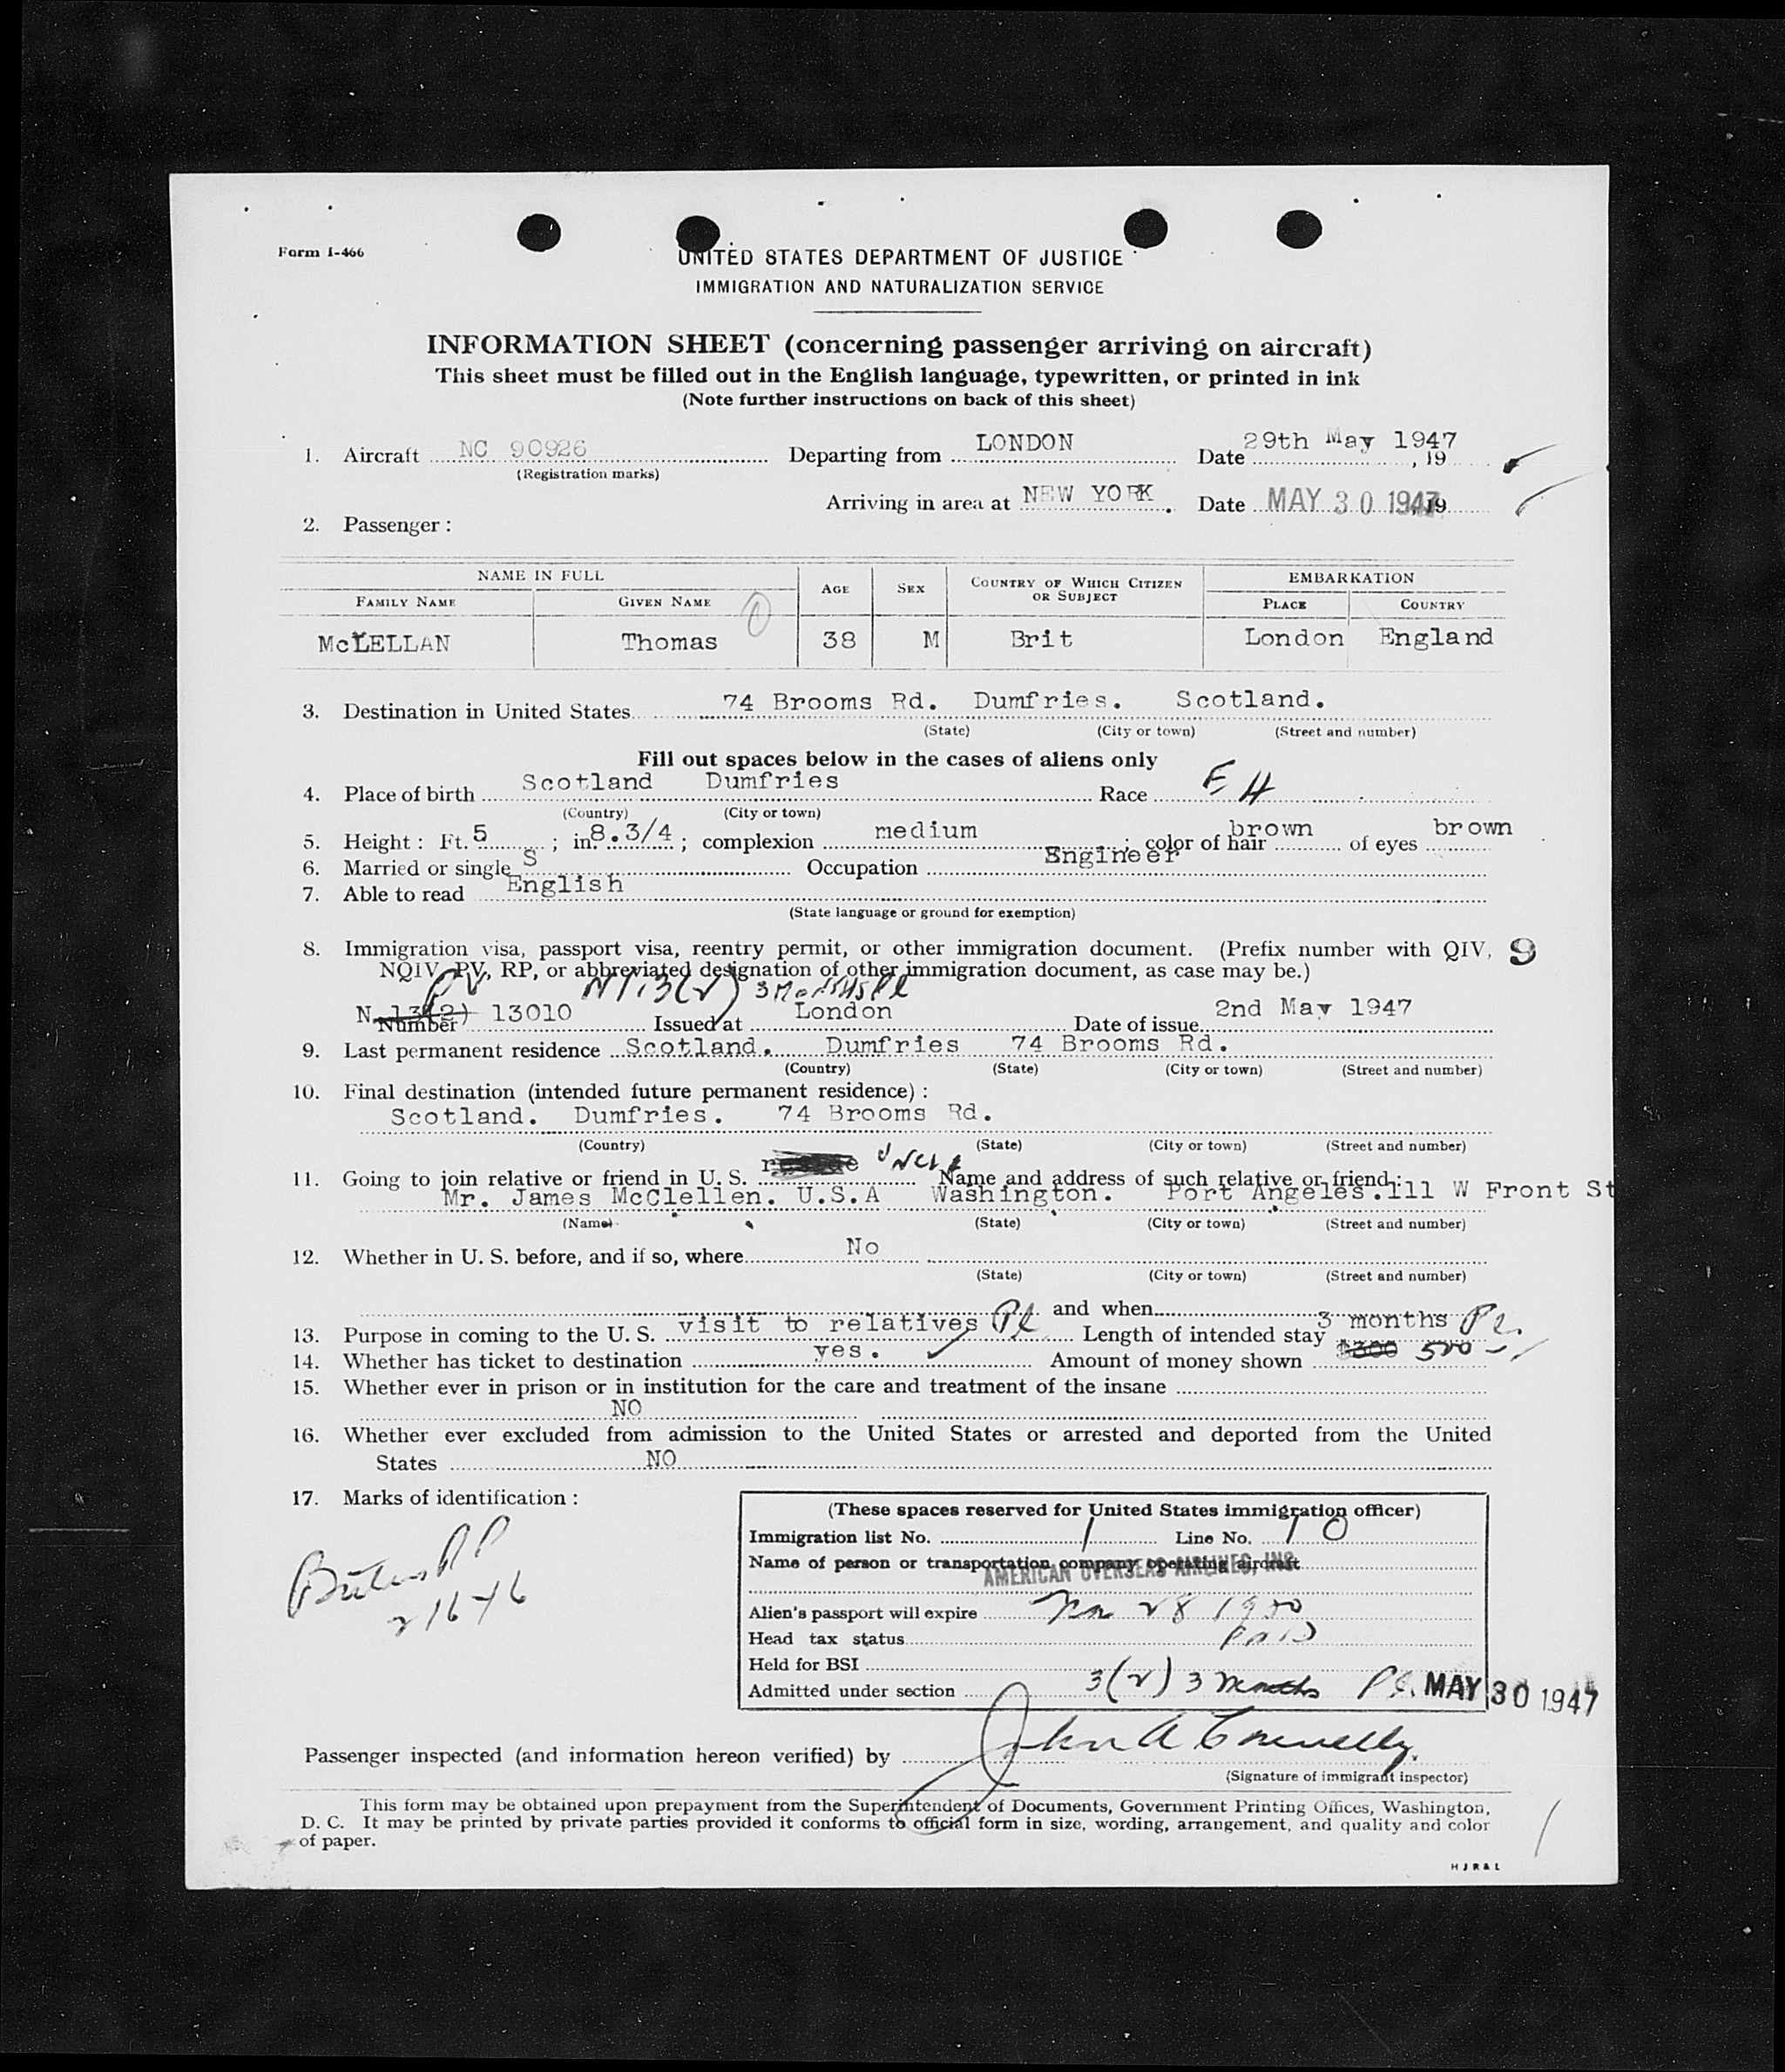 Form I-466
UNITED STATES DEPARTMENT OF JUSTICE
IMMIGRATION AND NATURALIZATION SERVICE
INFORMATION SHEET (concerning passenger arriving on aircraft)
This sheet must be filled out in the English language, typewritten, or printed in ink
(Note further instructions on back of this sheet)
1. Aircraft NC 90926 Departing from LONDON Date 29th May 1947, 19
(Registration marks)
Arriving in area at NEW YORK. Date MAY 30 1947, 19
2. Passenger:
NAME IN FULL AGE SEX COUNTRY OF WHICH CITIZEN OR SUBJECT EMBARKATION
FAMILY NAME GIVEN NAME PLACE COUNTRY
McLELLAN Thomas 38 M Brit London England
3. Destination in United States 74 Brooms Rd. Dumfries. Scotland.
(State) (City or town) (Street and number)
Fill out spaces below in the cases of aliens only
4. Place of birth Scotland Dumfries Race
(Country) (City or town)
5. Height: Ft. 5; in. 8.3/4; complexion medium; color of hair brown of eyes brown
6. Married or single S Occupation Engineer
7. Able to read English
(State language or ground for exemption)
8. Immigration visa, passport visa, reentry permit, or other immigration document. (Prefix number with QIV, 9
NQIV, PV, RP, or abbreviated designation of other immigration document, as case may be.)
PV
N 13(2) 13010 London 2nd May 1947
Number Issued at Date of issue
9. Last permanent residence Scotland. Dumfries 74 Brooms Rd.
(Country) (State) (City or town) (Street and number)
10. Final destination (intended future permanent residence):
Scotland. Dumfries. 74 Brooms Rd.
(Country) (State) (City or town) (Street and number)
11. Going to join relative or friend in U. S. UNCLE Name and address of such relative or friend:
Mr. James McClellen. U.S.A Washington. Port Angeles. 111 W Front St
(Name) (State) (City or town) (Street and number)
12. Whether in U. S. before, and if so, where No
(State) (City or town) (Street and number)
and when
13. Purpose in coming to the U. S. visit to relatives Length of intended stay 3 months
14. Whether has ticket to destination yes. Amount of money shown $300 500
15. Whether ever in prison or in institution for the care and treatment of the insane
NO
16. Whether ever excluded from admission to the United States or arrested and deported from the United
States NO
17. Marks of identification:
(These spaces reserved for United States immigration officer)
Immigration list No. 1 Line No. 10
Name of person or transportation company operating aircraft
AMERICAN OVERSEAS AIRLINES, INC.
Alien's passport will expire 28 1950
Head tax status PAID
Held for BSI
Admitted under section 3(2) 3 months MAY 30 1947
Passenger inspected (and information hereon verified) by John A Connelly
(Signature of immigrant inspector)
This form may be obtained upon prepayment from the Superintendent of Documents, Government Printing Offices, Washington,
D. C. It may be printed by private parties provided it conforms to official form in size, wording, arrangement, and quality and color
of paper.
H J R & L